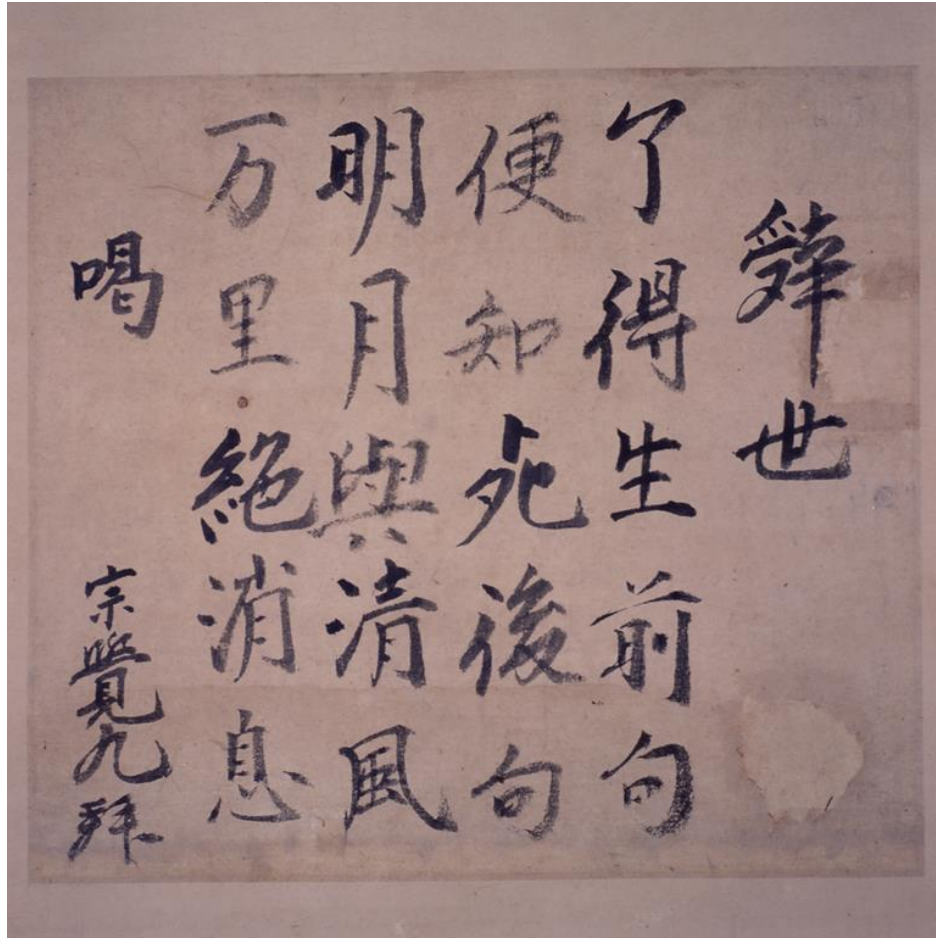 辤世
了得生前句
便知死後句
明月與清風
万里絶消息
喝
宗覺九拜